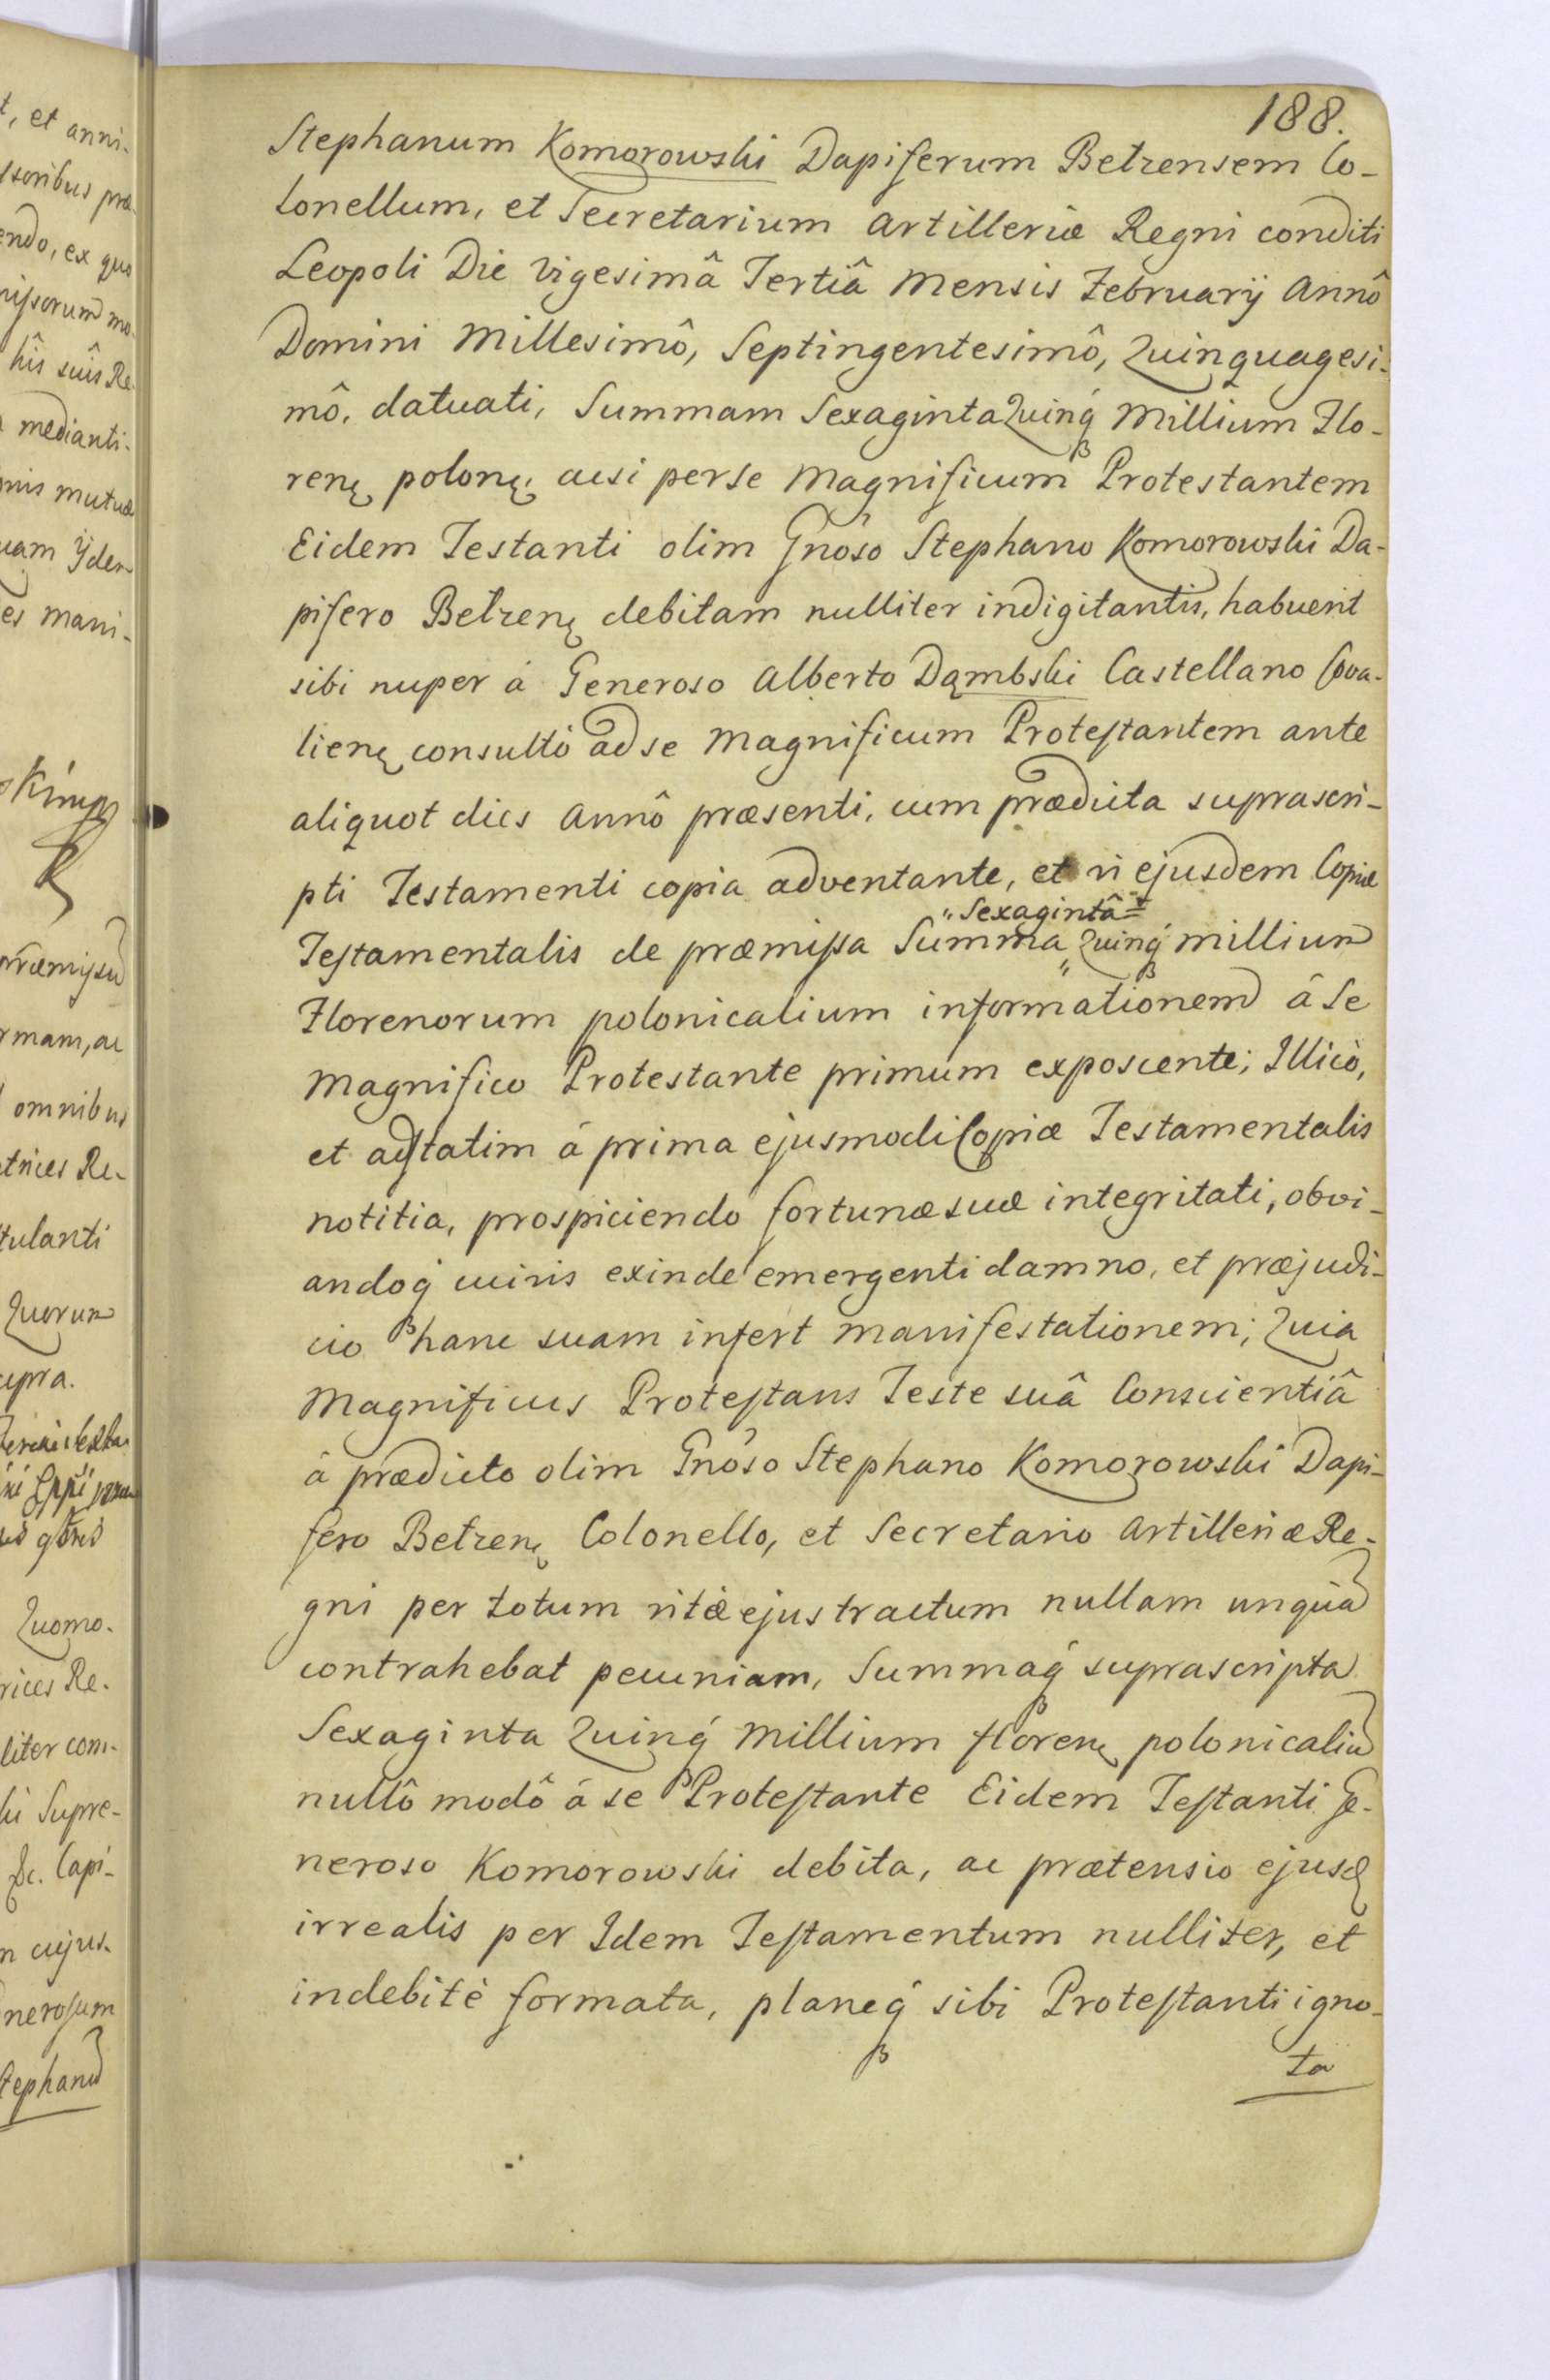 188.
Stephanum Komorowski Dapiferum Betzensem Co-
lonellum, et Secretarium Artilleriæ Regni conditi
Leopoli Die vigesimâ Tertiâ Mensis Februarÿ Annô
Domini Millesimô, Septingentesimô, Quinquagesi-
mô, datuati, Summam Sexaginta Quinq́ Millium Flo-
renę polonę, acsi per se Magnificum Protestantem
Eidem Testanti olim Gnôso Stephano Komorowski Da-
pifero Betzenę debitam nulliter indigitantis, habuerit
sibi nuper á Generoso Alberto Dąmbski Castellano Cova-
lienę consultò ad se Magnificum Protestantem ante
aliquot dies Annô præsenti, cum prædicta suprascri-
pti Testamenti copia adventante, et vi ejusdem Copiæ
"Sexagintâ=
Testamentalis de præmissa Summa " Quinq́ millium
Florenorum polonicalium informationem â Se
Magnifico Protestante primùm exposcente; Illicò,
et adstatim á prima ejusmodi Copiæ Testamentalis
notitia, prospiciendo fortunæ suæ integritati, obvi-
andoq́ cuivis exinde emergenti damno, et præjudi-
cio hanc suam infert manifestationem; Quia
Magnificus Protestans Teste suâ Conscientiâ
á prædicto olim Gnôso Stephano Komorowski Dapi-
fero Betzenę Colonello, et Secretario Artilleriæ Re-
gni per totum vitæ ejus tractum nullam unquã
contrahebat pecuniam, Summaq́ suprascripta
Sexaginta Quinq́ Millium florenę polonicaliũ
nullô modô á se Protestante Eidem Testanti Ge-
neroso Komorowski debita, ac prætensio ejusd
irrealis per Idem Testamentum nulliter, et
indebitè formata, planeq́ sibi Protestanti igno-
ta
t, et anni-
endo, ex quo
hîs suis Re-
medianti-
mutuæ
mani-
omnibus
Re-
tulanti
Quorum
upra.
Quomo-
Re-
liter com-
Supre-
Capi-
cujus-
nerosum
Stephanũ